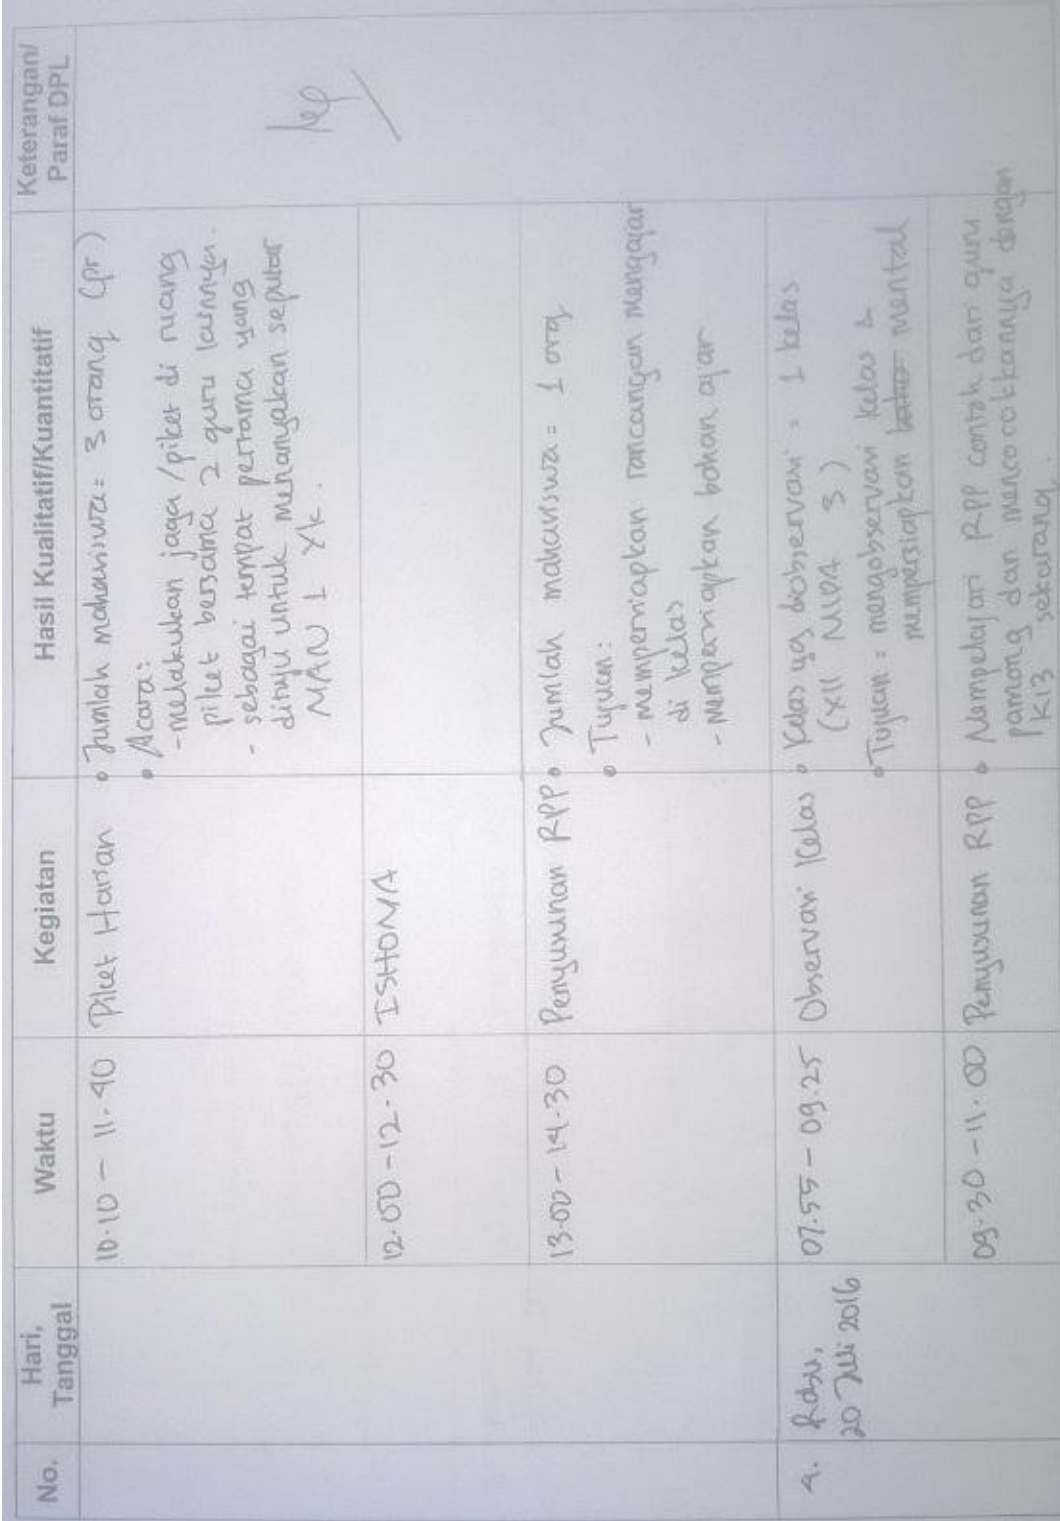 No.
Hari,
Tanggal
Waktu
Kegiatan
Hasil Kualitatif/Kuantitatif
Keterangan/
Paraf DPL
10.10 - 11.40
Piket Harian
• Jumlah mahasiswa = 3 orang (pr)
• Acara:
- melakukan jaga /piket di ruang
piket bersama 2 guru lainnya.
- sebagai tempat pertama yang
dituju untuk menanyakan seputar
MAN 1 YK.
12.00 - 12.30
ISHOMA
13.00 - 14.30
Penyusunan RPP
• Jumlah mahasiswa = 1 org
• Tujuan:
- mempersiapkan rancangan mengajar
di kelas
- mempersiapkan bahan ajar
4.
Rabu,
20 Juli 2016
07.55 - 09.25
Observasi Kelas
• Kelas yg diobservasi = 1 kelas
(XII MIPA 3)
• Tujuan = mengobservasi kelas &
mempersiapkan mental
09.30 - 11.00
Penyusunan RPP
• Mempelajari RPP contoh dari guru
pamong dan mencocokkannya dengan
K13 sekarang.